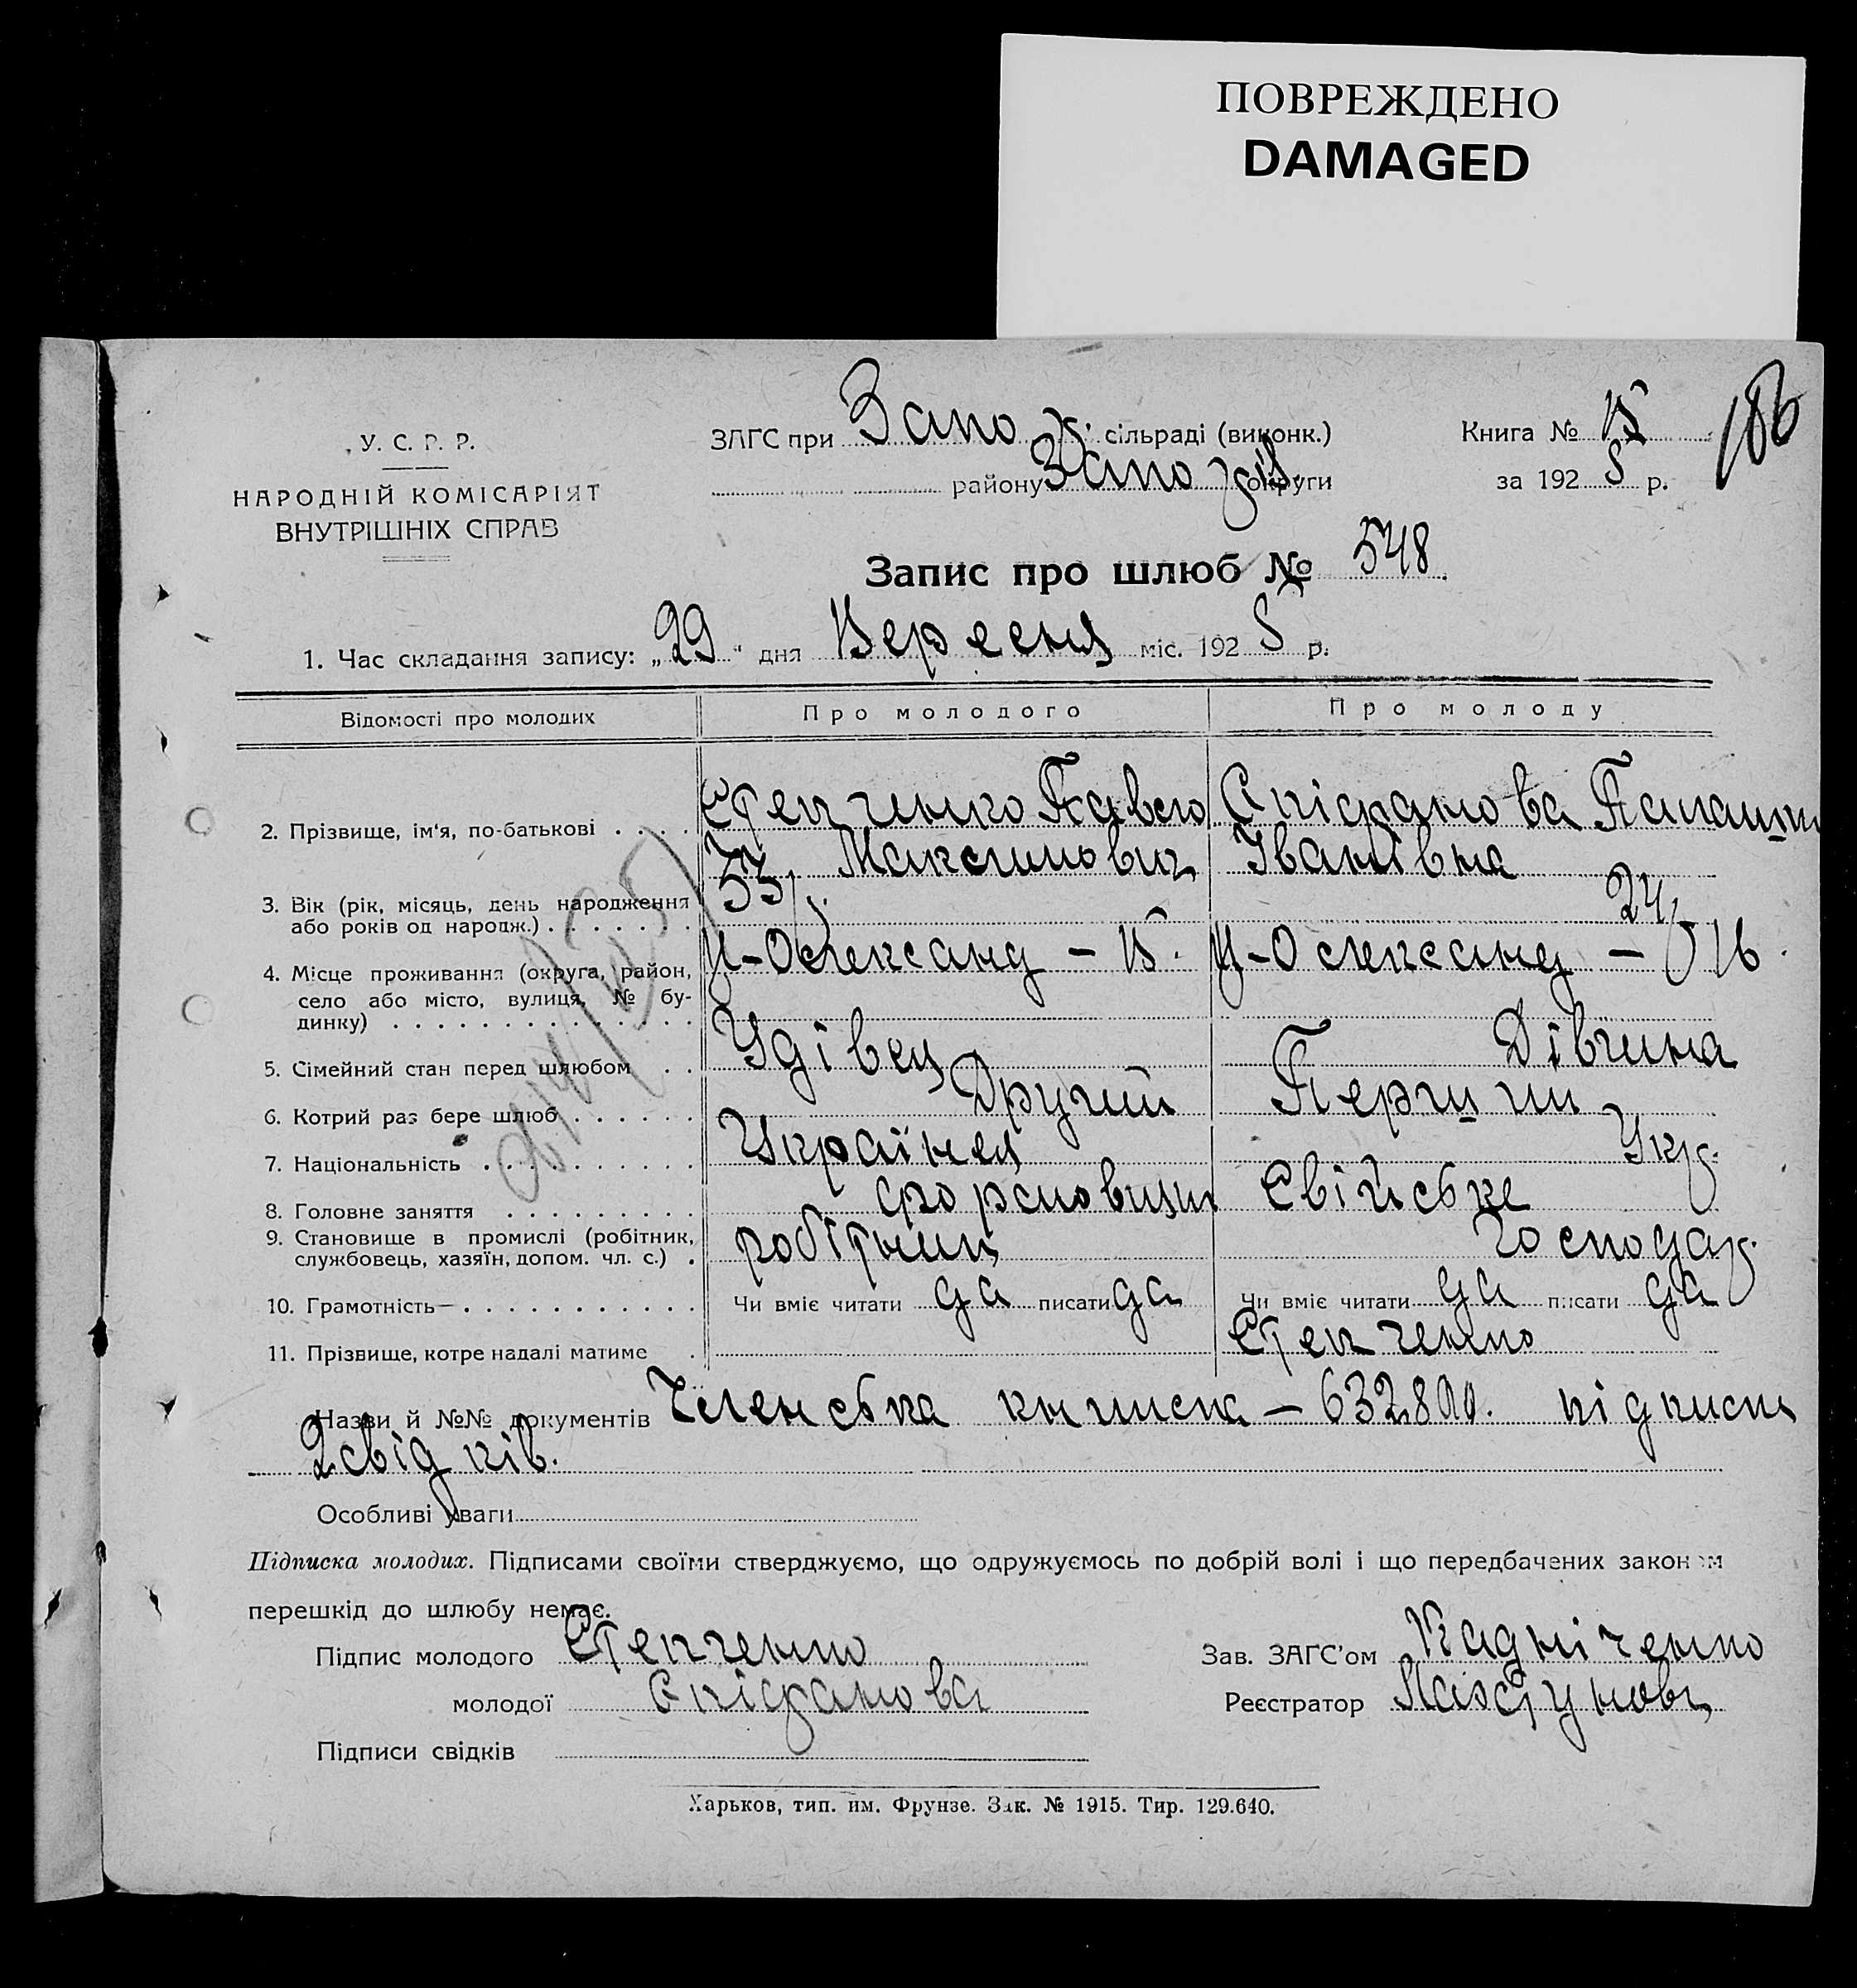 ПОВРЕЖДЕНО
DAMAGED
У. С. Р. Р.
НАРОДНІЙ КОМІСАРІЯТ
ВНУТРІШНІХ СПРАВ
ЗАГС при Запоріж. сільраді (виконк.)
району Запоріз округи
Книга №
за 192 5 р.
186
Запис про шлюб № 548
1. Час складання запису: „29“ дня Вересня міс. 192 5 р.
Відомості про молодих Про молодого Про молоду
2. Прізвище, ім'я, по-батькові . . . . Степченко Павло
Максимович Іванівна
3. Вік (рік, місяць, день народження 33 р. 24
або років од народж.) . . . . . . .
4. Місце проживання (округа, район, село або місто, вулиця, № будинку) . . . Олександ – Олександ – 16.
5. Сімейний стан перед шлюбом . . Удівец Дівчина
6. Котрий раз бере шлюб . . . . . . Другий Перший
7. Національність . . . . . . . . . . Українец Укр.
8. Головне заняття . . . . . . . . . формовщик Свійське
9. Становище в промислі (робітник, робітник господар.
службовець, хазяїн, допом. чл. с.) .
10. Грамотність— . . . . . . . . . . . Чи вміє читати да писати да Чи вміє читати да писати да
11. Прізвище, котре надалі матиме . Степченко
Назви й №№ документів Членська книжка – підписка
2 свідків.
Особливі уваги
Підписка молодих. Підписами своїми стверджуємо, що одружуємось по добрій волі і що передбачених законом
перешкід до шлюбу немає.
Підпис молодого Степченко
Зав. ЗАГС'ом Кадніченко
молодої
Реєстратор
Підписи свідків
Харьков, тип. им. Фрунзе. Зак. № 1915. Тир. 129.640.